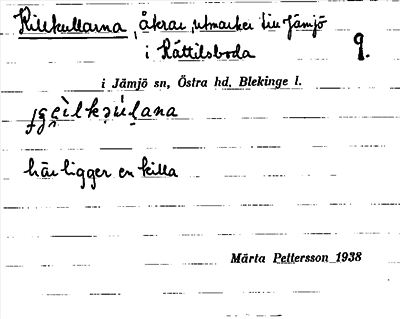 Killekullarna, åkrar, utmarker till Jämjö
i Rättilsboda 9.
i Jämjö sn, Östra hd, Blekinge l.
här ligger en killa
Märta Pettersson 1938